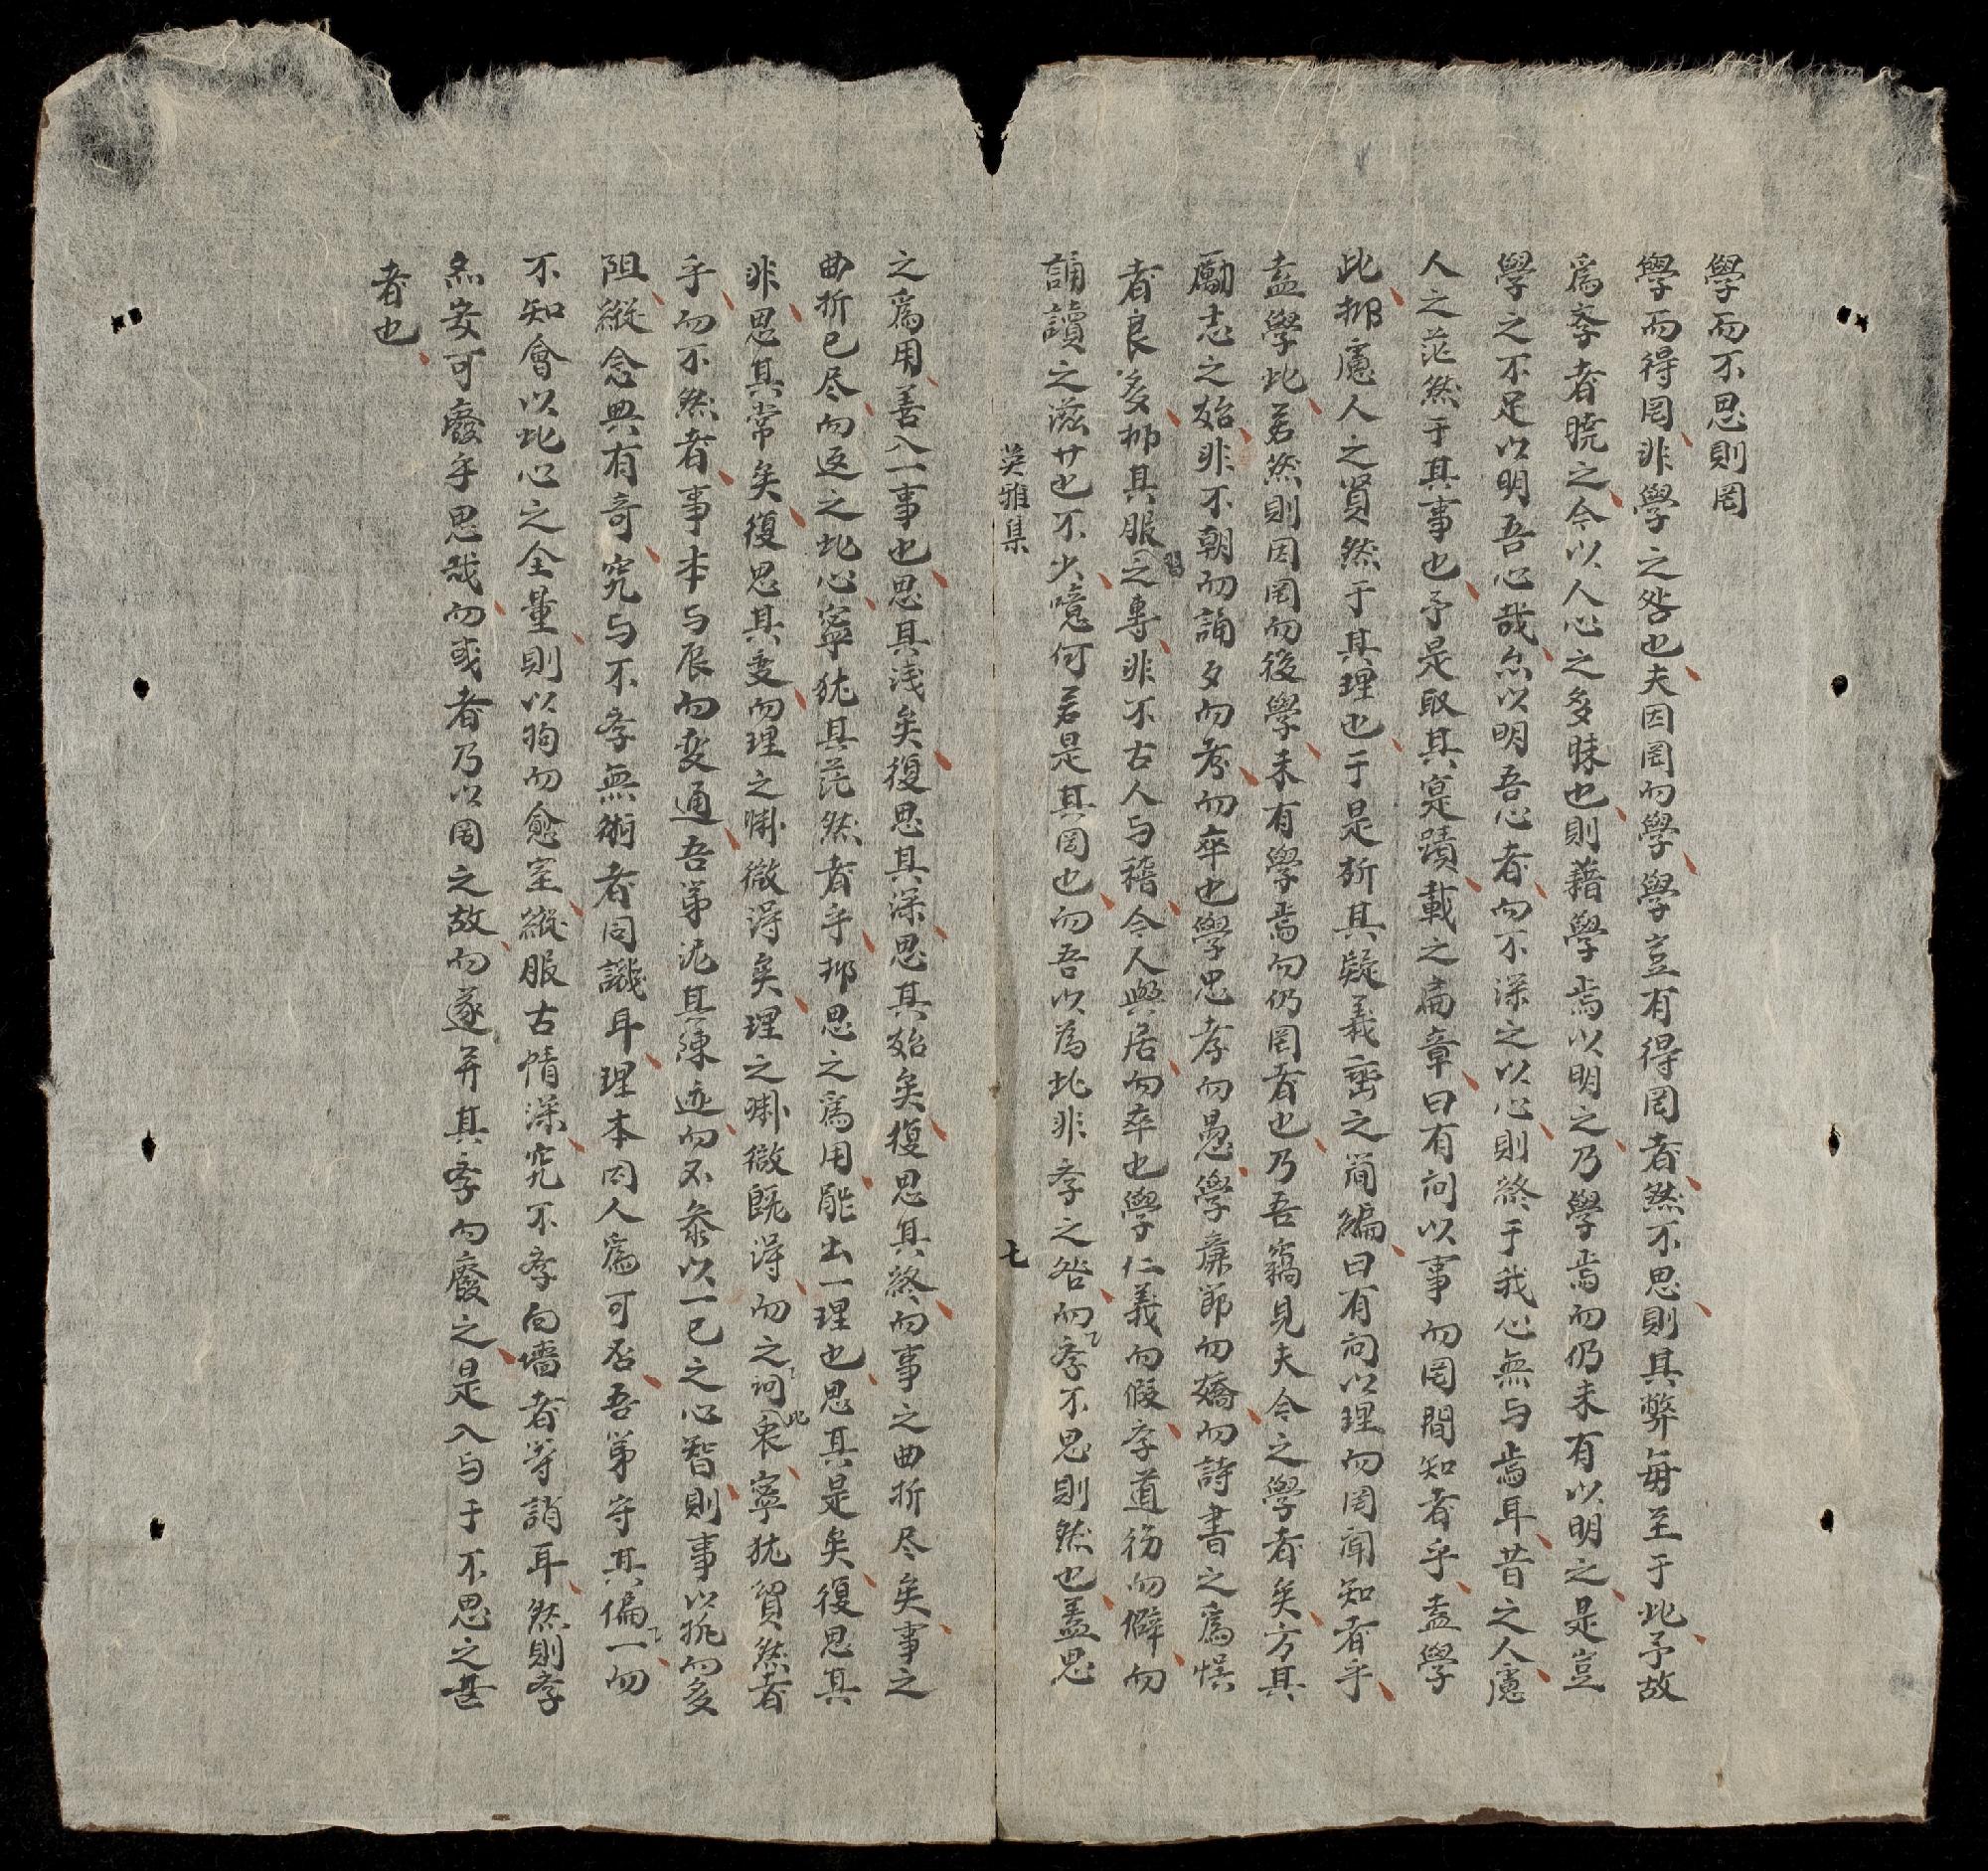 學而不思則罔
學而得罔非學之咎也夫因罔而學學豈有得罔者然不思則其弊每至于此予故
爲斈者曉之今以人心之多昧也則藉學焉以明之乃學焉而仍未有以明之是豈
學之不足以明吾心哉亦以明吾心者而不深之以心則終于我心無与焉耳昔之人慮
人之茫然于其事也于是取其寔蹟載之扁章曰有问以事而罔間知者乎盍學
此抑慮人之貿然于其理也于是析其疑義番之简編曰有问以理而罔聞知者乎
盍學此若然則因罔而後學未有學焉而仍罔者也乃吾竊見夫今之學者矣方其
勵志之始非不朝而誦夕而考而卒也學忠孝而愚學廉節而矯而詩書之爲悞
者良多抑其服習之專非不古人与稽今人與居而卒也學仁義而假斈道術而僻而
誦讀之滋廿也不少噫何若是其罔也而吾以為此非斈之咎而斈不思則然也蓋思
英雅集
七
之爲用善入一事也思其浅矣復思其深思其始矣復思其終而事之曲折尽矣事之
曲折已尽而返之此心寧犹其茫然者乎抑思之爲用能出一理也思其是矣復思其
非思其常矣復思其变而理之渊微淂矣理之渊微既淂而之词衷此寧犹貿然者
乎而不然者事本与辰而变通吾第泥其陳迹而不叅以一已之心智則事以执而多
阻縱念典有奇究与不斈無術者同譏耳理本因人爲可否吾第守其偏一而
不知會以此心之全量則以狥而愈窒縱服古情深究不斈向墻者等誚耳然則斈
烝安可廢乎思哉而或者乃以罔之故而遂并其斈而廢之是入与于不思之甚
者也